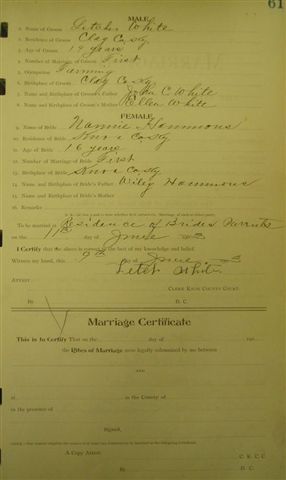 61
MALE
Name of Groom Fletcher White
Residence of Groom Clay County
Age of Groom 19 years
Number of Marriage of Groom First
Occupation Farming
Clay County
Name and Birthplace of Groom's Father John C White
Name and Birthplace of Groom's Mother Ellen White
FEMALE
Name of Bride Nannie Hammons
Residence of Bride Knox County
Age of Bride 16 years
Number of Marriage of Bride First
Birthplace of Bride Knox County
Name and Birthplace of Bride's Father Wiley Hammons
Name and Birthplace of Bride's Mother
Remarks
To be married at Residence of Brides Parents
on the 11th day of June
I Certify that the above is correct to the best of my knowledge and belief.
Witness my hand, this 9th day of June
White
Attest:
CLERK KNOX COUNTY COURT.
By D. C.
Marriage Certificate
This is to Certify That on the day of
the Rites of Marriage were legally solemnized by me between
AND
at in the County of
in the presence of
Signed,
A Copy Attest: C. K. C. C.
By D. C.